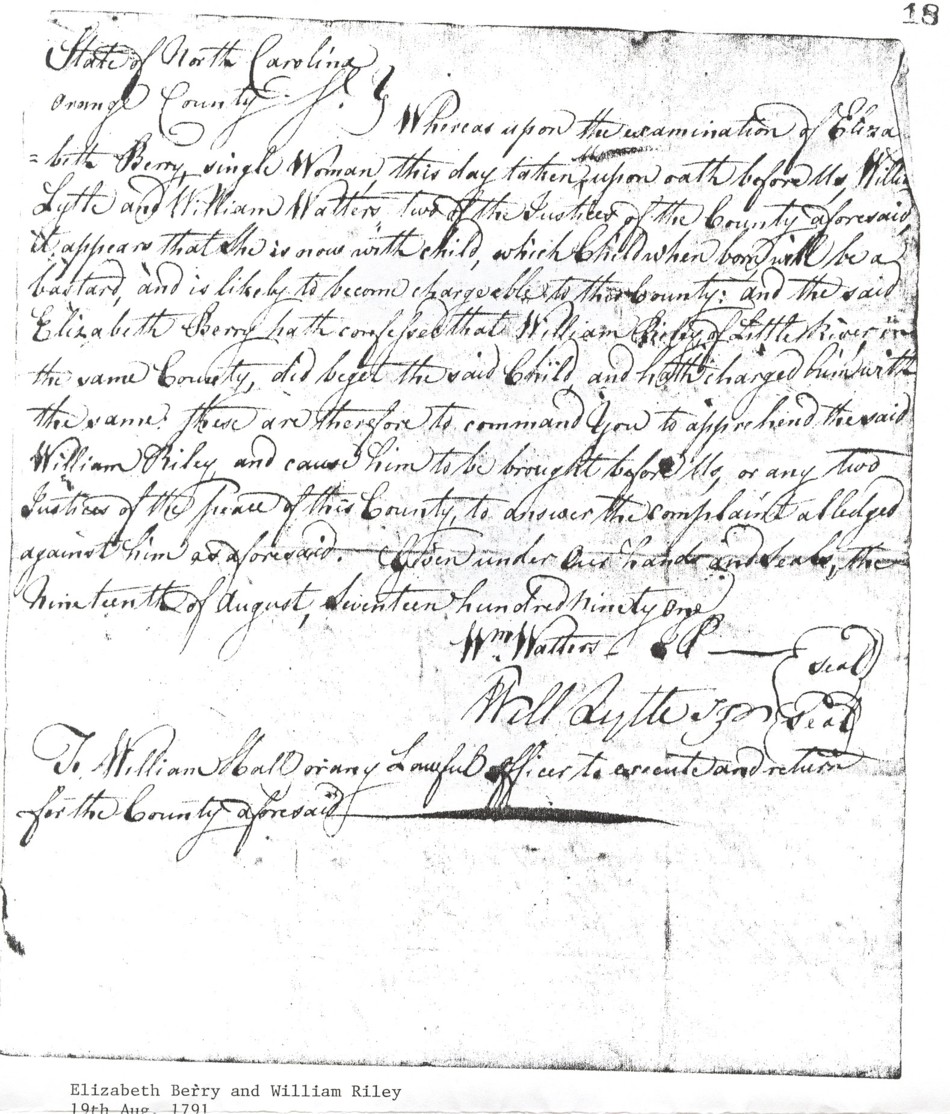 18
State of North Carolina
Orange County
Whereas upon the examination of Eliza
=beth Berry, single Woman this day taken upon oath before Us, Willi
Lytle and William Watters, two of the Justices of the County aforesaid,
it appears that she is now with child, which Child when born will be a
bastard, and is likely to become chargeable to this County: and the said
Elizabeth Berry hath confessed that William Riley of Little River, in
the same County, did beget the said Child, and hath charged him with
the same: these are therefore to command You to apprehend the said
William Riley, and cause him to be brought before Us, or any two
Justices of the peace of this County, to answer the complaint alledged
against him as aforesaid. Given under Our hands and Seals, the
Nineteenth of August, Seventeen hundred Ninety One
Wm. Watters JP seal
Will Lytle Seal
To William Hall or any Lawful officer to execute and return
for the County aforesaid
Elizabeth Berry and William Riley
19th Aug. 1791